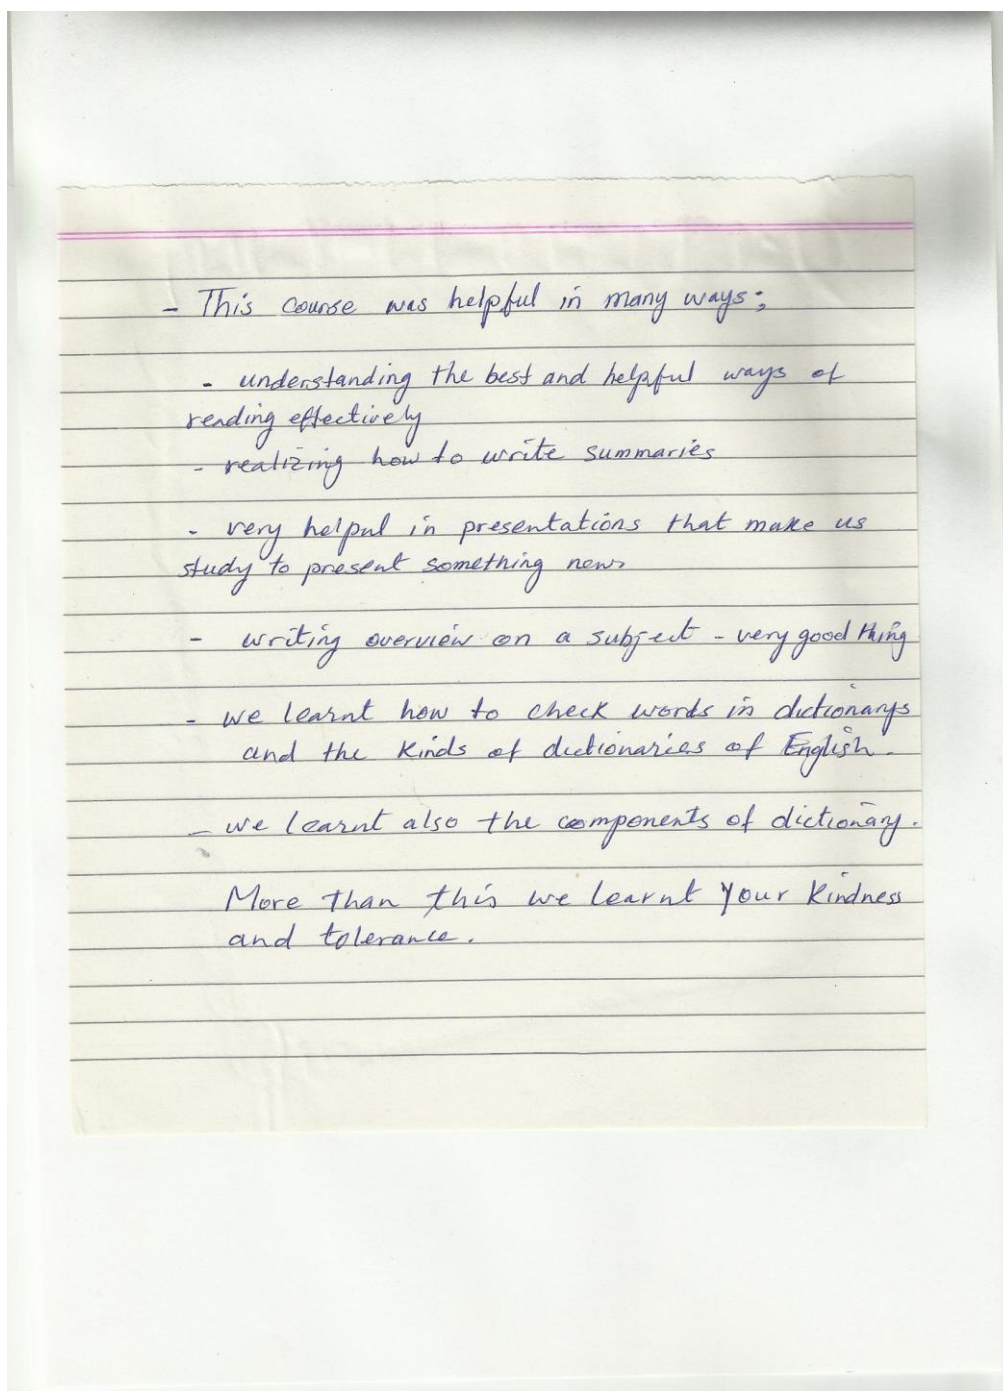 - This course was helpful in many ways;
- understanding the best and helpful ways of
reading effectively
- realizing how to write summaries
- very helpul in presentations that make us
study to present something new.
- writing overview on a subject - very good thing
- we learnt how to check words in dictionarys
and the kinds of dictionaries of English.
- we learnt also the components of dictionary.
More than this we learnt your kindness
and tolerance.